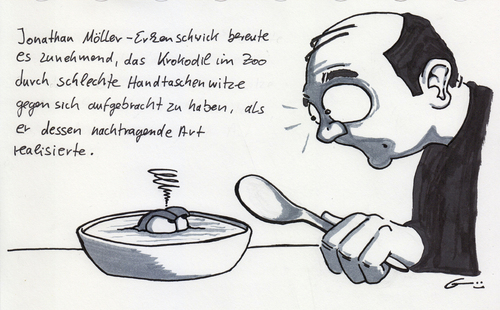 Jonathan Möller-Erkenschwick bereute
es zunehmend, das Krokodil im Zoo
durch schlechte Handtaschenwitze
gegen sich aufgebracht zu haben, als
er dessen nachtragende Art
realisierte.